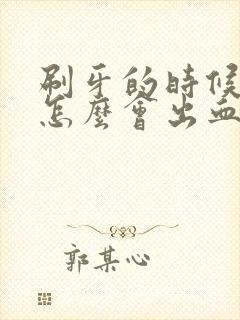 刷牙的時候
怎麼會出血
郭某心